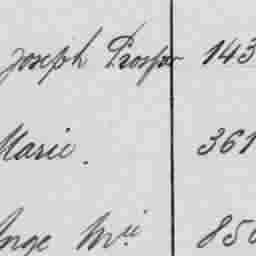 Joseph Prosper 143
Marie. 361
Ange Mie 850